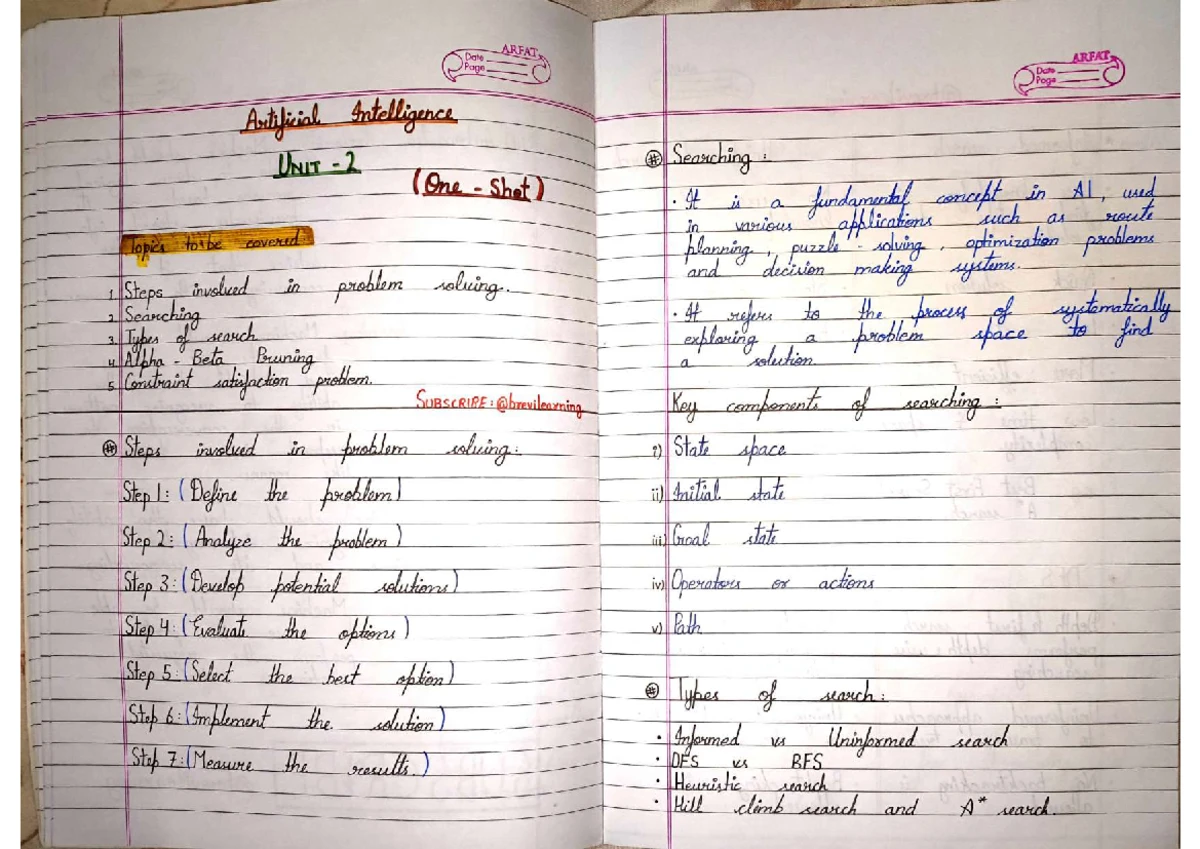 ARFAT
Date
Page
Artificial Intelligence
UNIT - 2
(One - Shot)
Topics to be covered
1. Steps involved in problem solving.
2. Searching
3. Types of search
4. Alpha - Beta Pruning
5. Constraint satisfaction problem.
SUBSCRIBE: @brevilearning
# Steps involved in problem solving:
Step 1: (Define the problem)
Step 2: (Analyze the problem)
Step 3: (Develop potential solutions)
Step 4: (Evaluate the options)
Step 5: (Select the best option)
Step 6: (Implement the solution)
Step 7: (Measure the results.)
ARFAT
Date
Page
# Searching :
• It is a fundamental concept in AI, used
in various applications such as route
planning, puzzle - solving, optimization problems
and decision making systems.
• It refers to the process of systematically
exploring a problem space to find
a solution.
Key components of searching :
i) State space
ii) Initial state
iii) Goal state
iv) Operators or actions
v) Path
# Types of search:
• Informed vs Uninformed search
• DFS vs BFS
• Heuristic search
• Hill climb search and A* search.